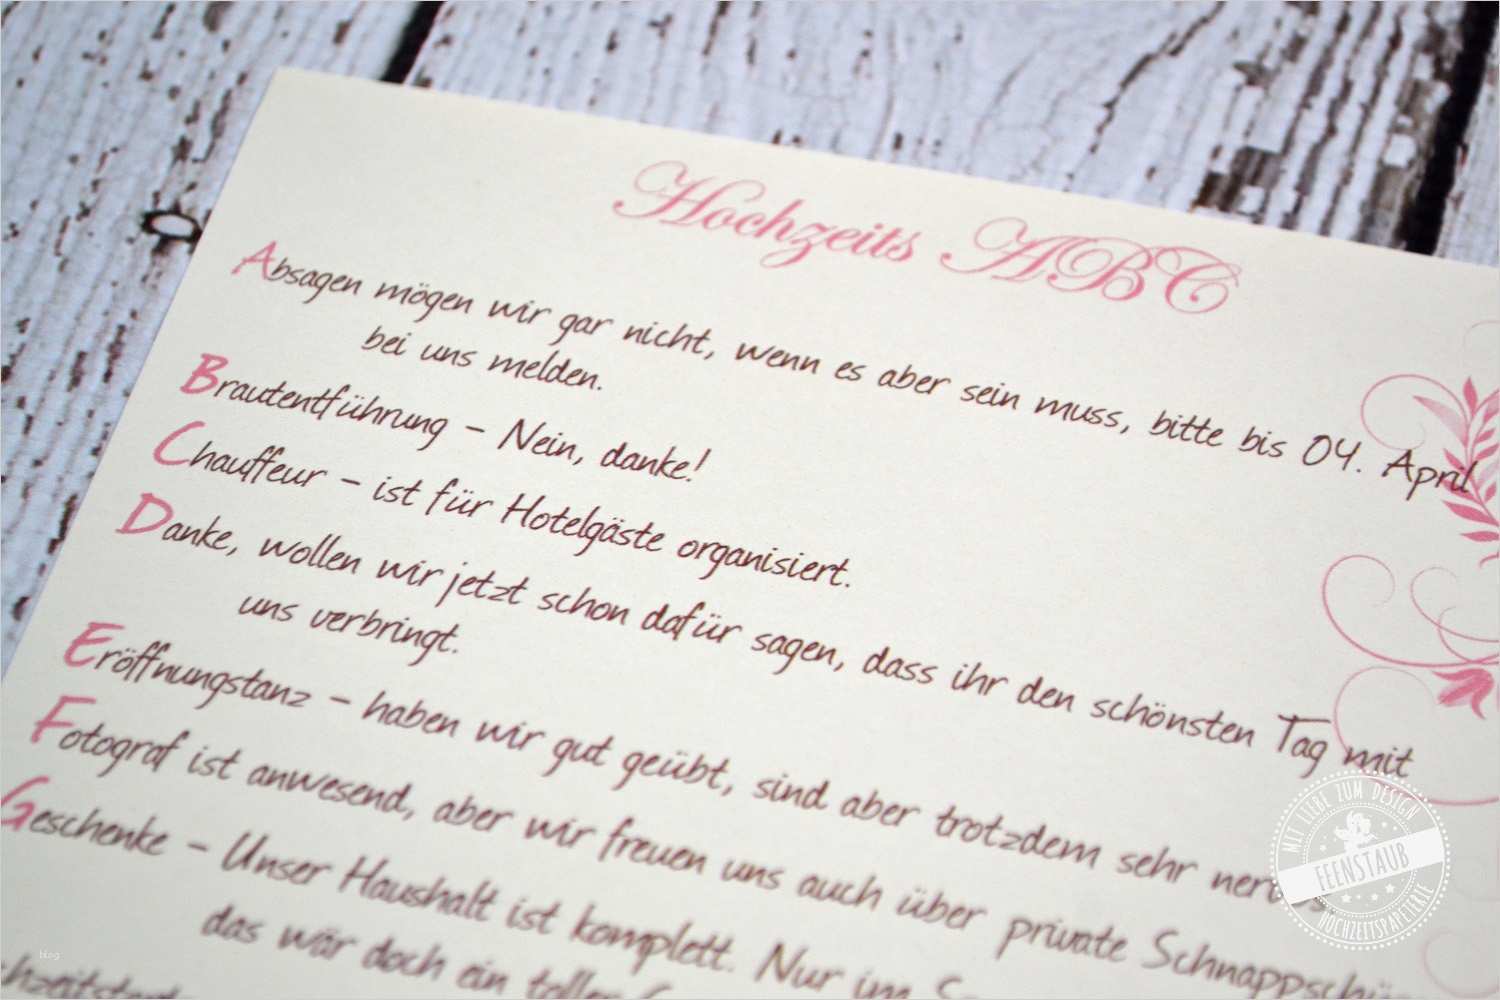 Hochzeits ABC
Absagen mögen wir gar nicht, wenn es aber sein muss, bitte bis 04. April
bei uns melden.
Brautentführung – Nein, danke!
Chauffeur – ist für Hotelgäste organisiert.
Danke, wollen wir jetzt schon dafür sagen, dass ihr den schönsten Tag mit
uns verbringt.
Eröffnungstanz – haben wir gut geübt, sind aber trotzdem sehr
Fotograf ist anwesend, aber wir freuen uns auch über private
Geschenke – Unser Haushalt ist komplett. Nur im
das wär doch ein toller
MIT LIEBE ZUM DESIGN
FEENSTAUB
HOCHZEITSPAPETERIE
blog